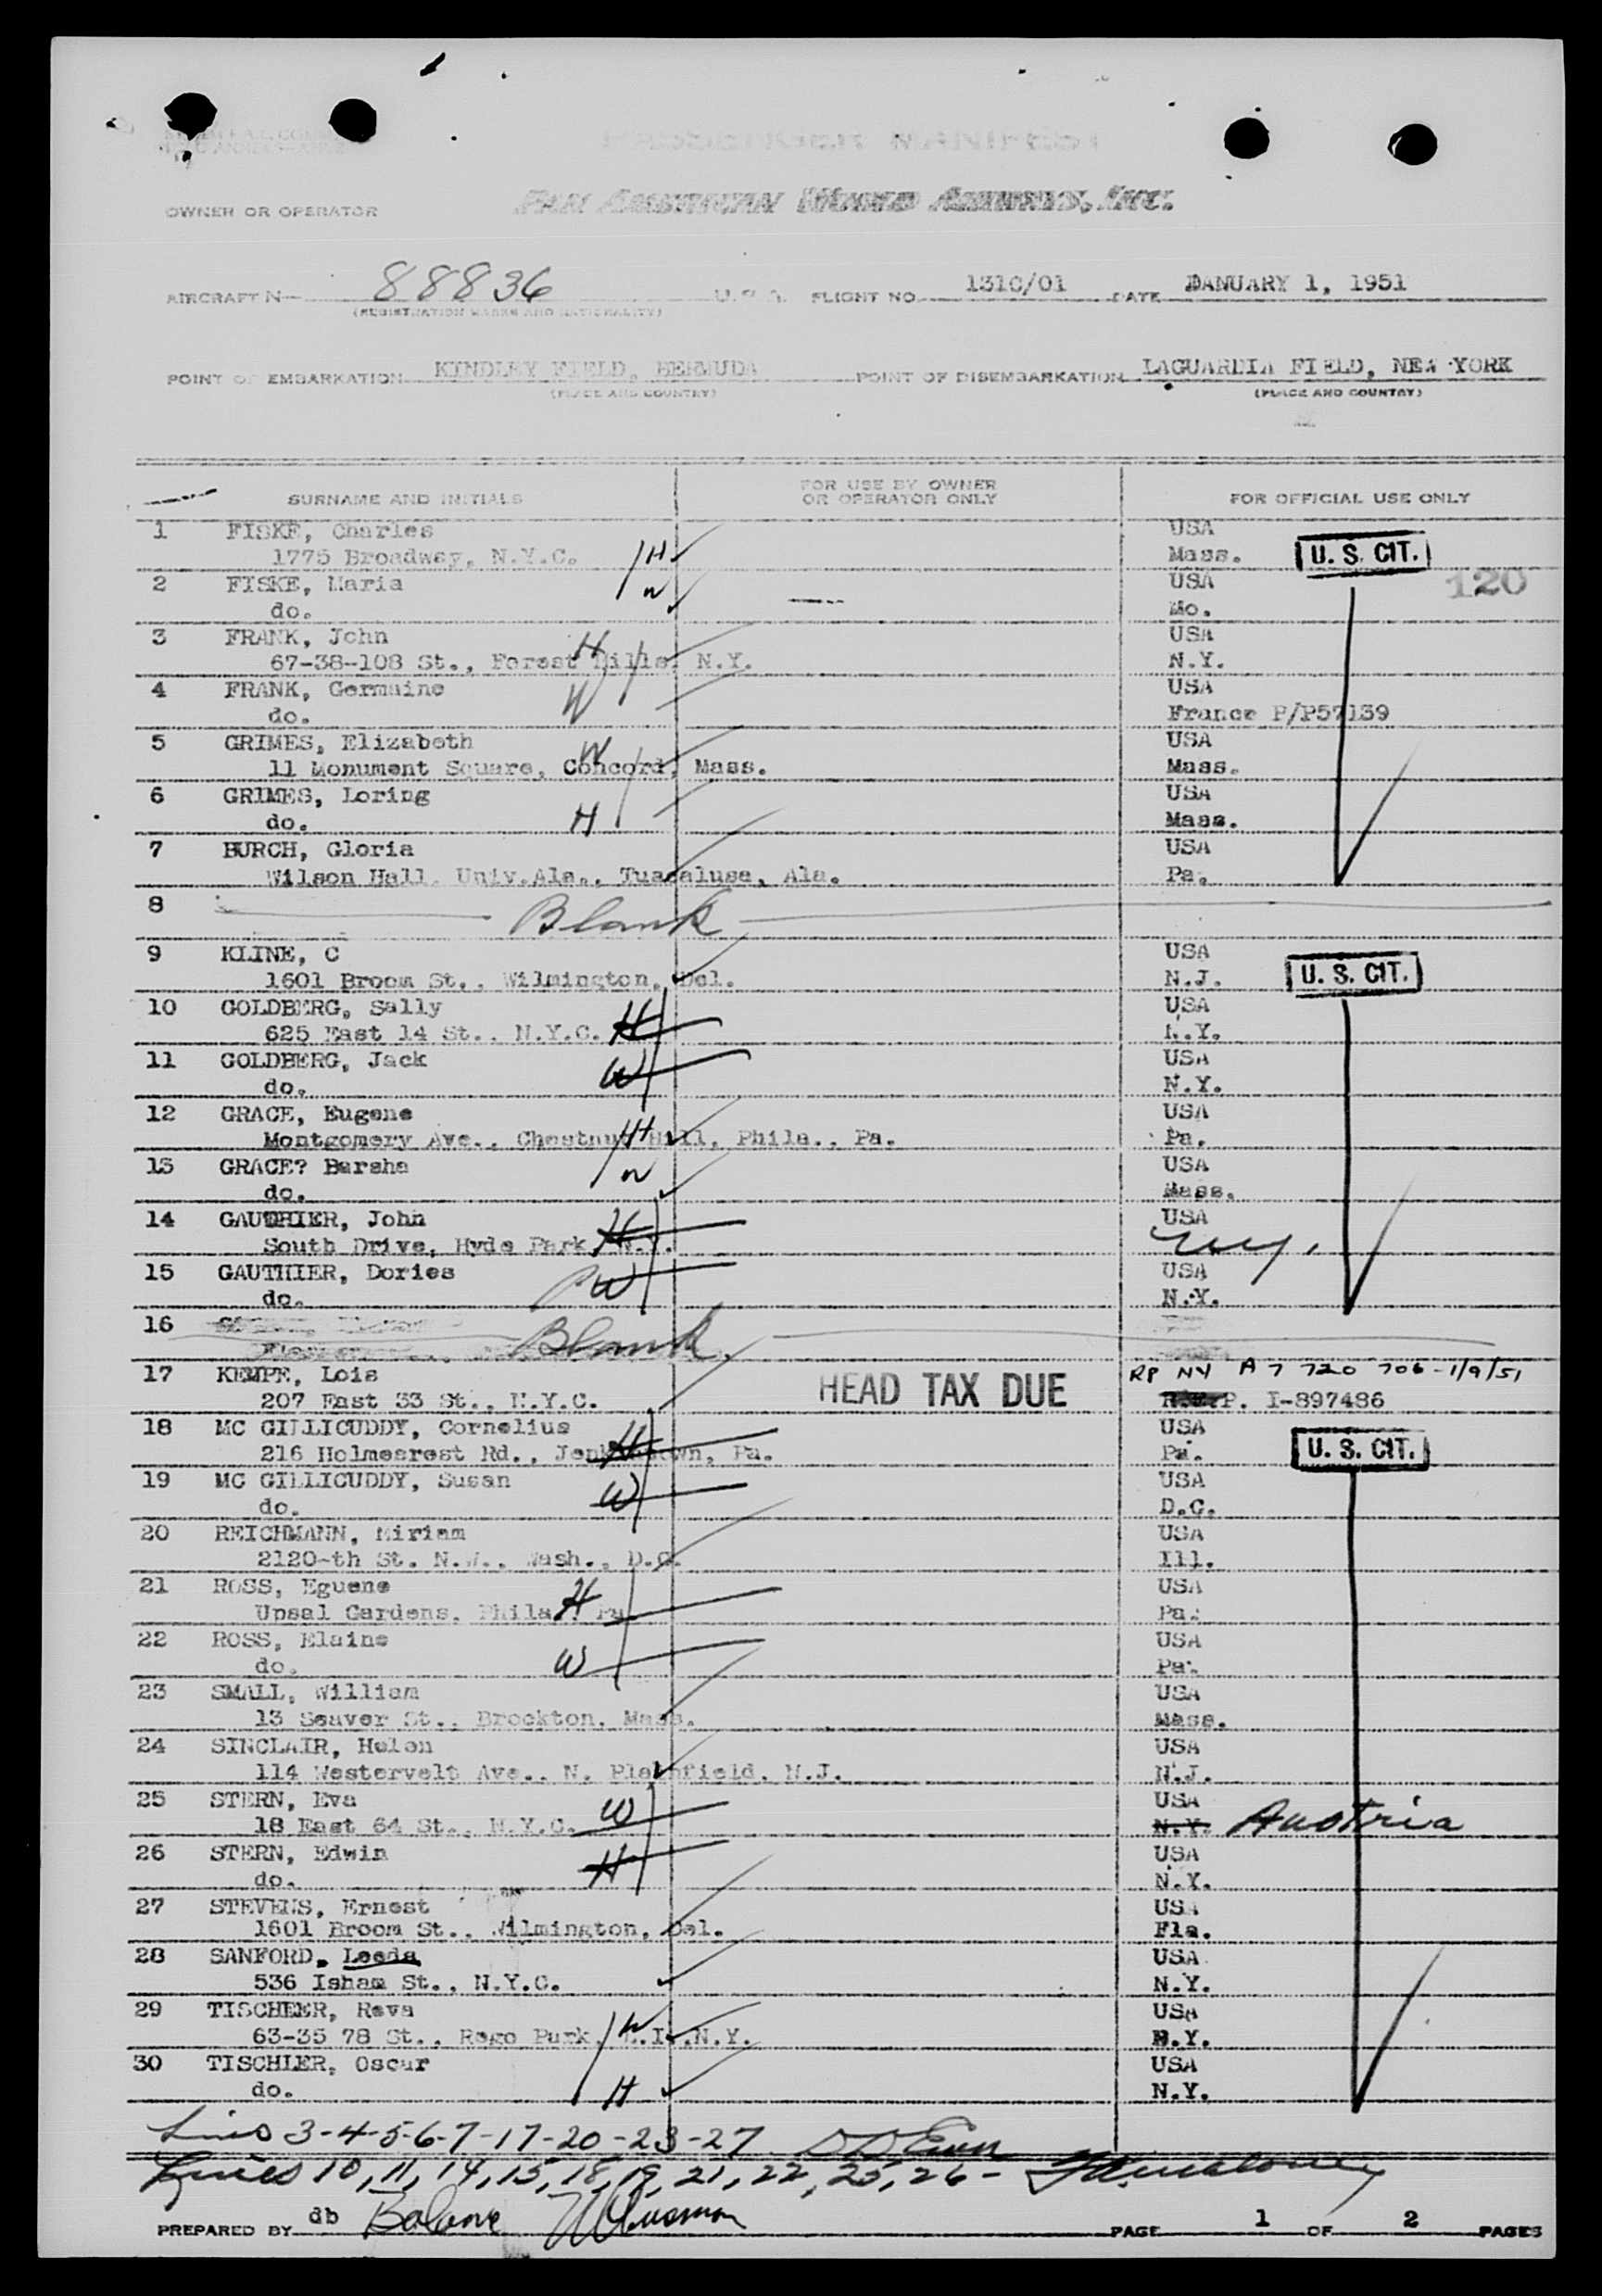 PASSENGER MANIFEST
OWNER OR OPERATOR PAN AMERICAN WORLD AIRWAYS, INC.
AIRCRAFT N- 88836 U.S.A. FLIGHT NO. 131C/01 DATE JANUARY 1, 1951
(REGISTRATION MARKS AND NATIONALITY)
POINT OF EMBARKATION KINDLEY FIELD, BERMUDA POINT OF DISEMBARKATION LAGUARDIA FIELD, NEW YORK
(PLACE AND COUNTRY) (PLACE AND COUNTRY)
SURNAME AND INITIALS FOR USE BY OWNER OR OPERATOR ONLY FOR OFFICIAL USE ONLY
1 FISKE, Charles USA
1775 Broadway, N.Y.C. H Mass. U. S. CIT.
2 FISKE, Maria W USA 120
do. Mo.
3 FRANK, John H USA
67-38-108 St., Forest Hills, N.Y. N.Y.
4 FRANK, Germaine W USA
do. France P/P57139
5 GRIMES, Elizabeth W USA
11 Monument Square, Concord, Mass. Mass.
6 GRIMES, Loring USA
do. H Mass.
7 BURCH, Gloria USA
Wilson Hall, Univ.Ala., Tuscalusa, Ala. Pa.
8 Blank
9 KLINE, C USA
1601 Broom St., Wilmington, Del. N.J. U. S. CIT.
10 GOLDBERG, Sally USA
625 East 14 St., N.Y.C. H N.Y.
11 GOLDBERG, Jack W USA
do. N.Y.
12 GRACE, Eugene USA
Montgomery Ave., Chestnut Hill, Phila., Pa. H Pa.
13 GRACE? Barsha W USA
do. Mass.
14 GAUTHIER, John USA
South Drive, Hyde Park, N.Y. H N.Y.
15 GAUTHIER, Dories W USA
do. N.Y.
16 Blank
17 KEMPE, Lois HEAD TAX DUE RP NY A 7 720 706 - 1/9/51
207 East 33 St., N.Y.C. P. I-897486
18 MC GILLICUDDY, Cornelius USA
216 Holmecrest Rd., Jenkintown, Pa. H Pa. U. S. CIT.
19 MC GILLICUDDY, Susan W USA
do. D.C.
20 REICHMANN, Miriam USA
2120-th St. N.W., Wash., D.C. Ill.
21 ROSS, Eguene USA
Upsal Gardens, Phila. Pa. H Pa.
22 ROSS, Elaine USA
do. W Pa.
23 SMALL, William USA
13 Seaver St., Brockton, Mass. Mass.
24 SINCLAIR, Helen USA
114 Westervelt Ave., N. Plainfield, N.J. N.J.
25 STERN, Eva W USA
18 East 64 St., N.Y.C. N.Y. Austria
26 STERN, Edwin H USA
do. N.Y.
27 STEVENS, Ernest USA
1601 Broom St., Wilmington, Del. Fla.
28 SANFORD, Leeda USA
536 Isham St., N.Y.C. N.Y.
29 TISCHLER, Reva W USA
63-35 78 St., Rego Park, L.I.,N.Y. N.Y.
30 TISCHLER, Oscar USA
do. H N.Y.
Lines 3-4-5-6-7-17-20-23-27
Lines 10, 11, 14, 15, 18, 19, 21, 22, 25, 26 -
PREPARED BY db Balance PAGE 1 OF 2 PAGES